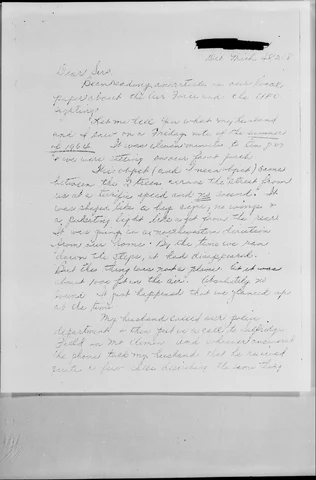 Dear Sir.
Been reading an article in our local
paper about the Air Force and the UFO
sighting.
Let me tell you what my husband
and I saw on a Friday nite of the summer
of 1964. It was eleven minutes to ten P.M.
we were sitting on our front porch.
This object (and I mean object) came
between the 2 trees across the street from
us at a terrific speed and no sound. It
was shaped like a big cigar, no wings &
a pulsating light like a jet from the rear.
It was going in a northwestern direction
from our home. By the time we ran
down the steps, it had disappeared.
But this thing was not a plane. It was
about 100 ft in the air. Absolutely no
sound. I just happened that we glanced up
at the time.
My husband called our police
department & they put in a call to Selfridge
Field in Mt Clemens and whoever answered
the phone told my husband that he received
quite a few calls describing the same thing